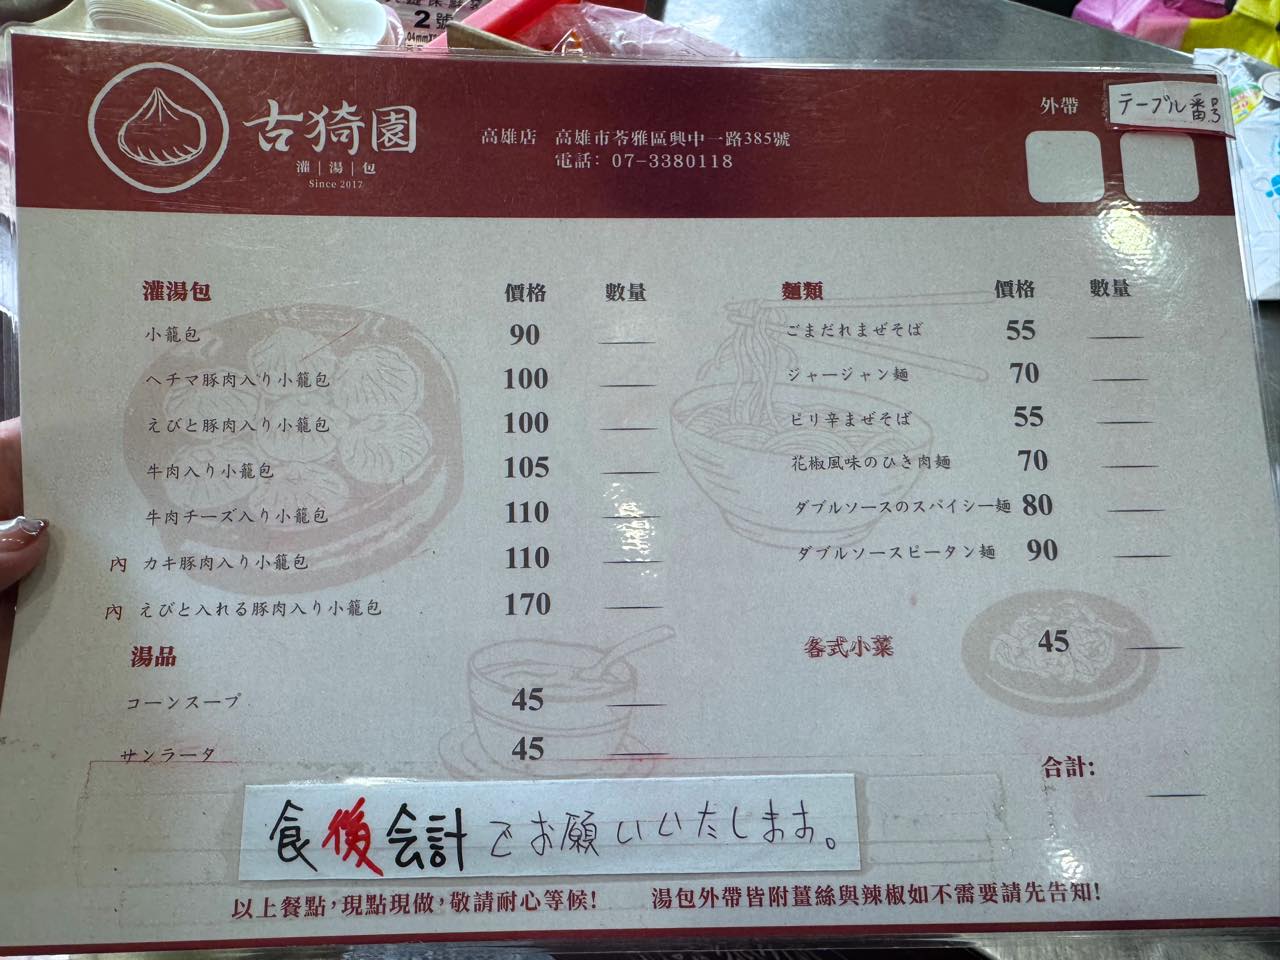 2號
古猗園
灌|湯|包
Since 2017
高雄店 高雄市苓雅區興中一路385號
電話: 07-3380118
外帶
テーブル番号
灌湯包 價格 數量
小籠包 90
ヘチマ豚肉入り小籠包 100
えびと豚肉入り小籠包 100
牛肉入り小籠包 105
牛肉チーズ入り小籠包 110
內 カキ豚肉入り小籠包 110
內 えびと入れる豚肉入り小籠包 170
湯品
コーンスープ 45
サンラータ 45
麵類 價格 數量
ごまだれまぜそば 55
ジャージャン麺 70
ピリ辛まぜそば 55
花椒風味のひき肉麺 70
ダブルソースのスパイシー麺 80
ダブルソースピータン麺 90
各式小菜 45
合計:
食後会計でお願いいたします。
以上餐點,現點現做,敬請耐心等候! 湯包外帶皆附薑絲與辣椒如不需要請先告知!